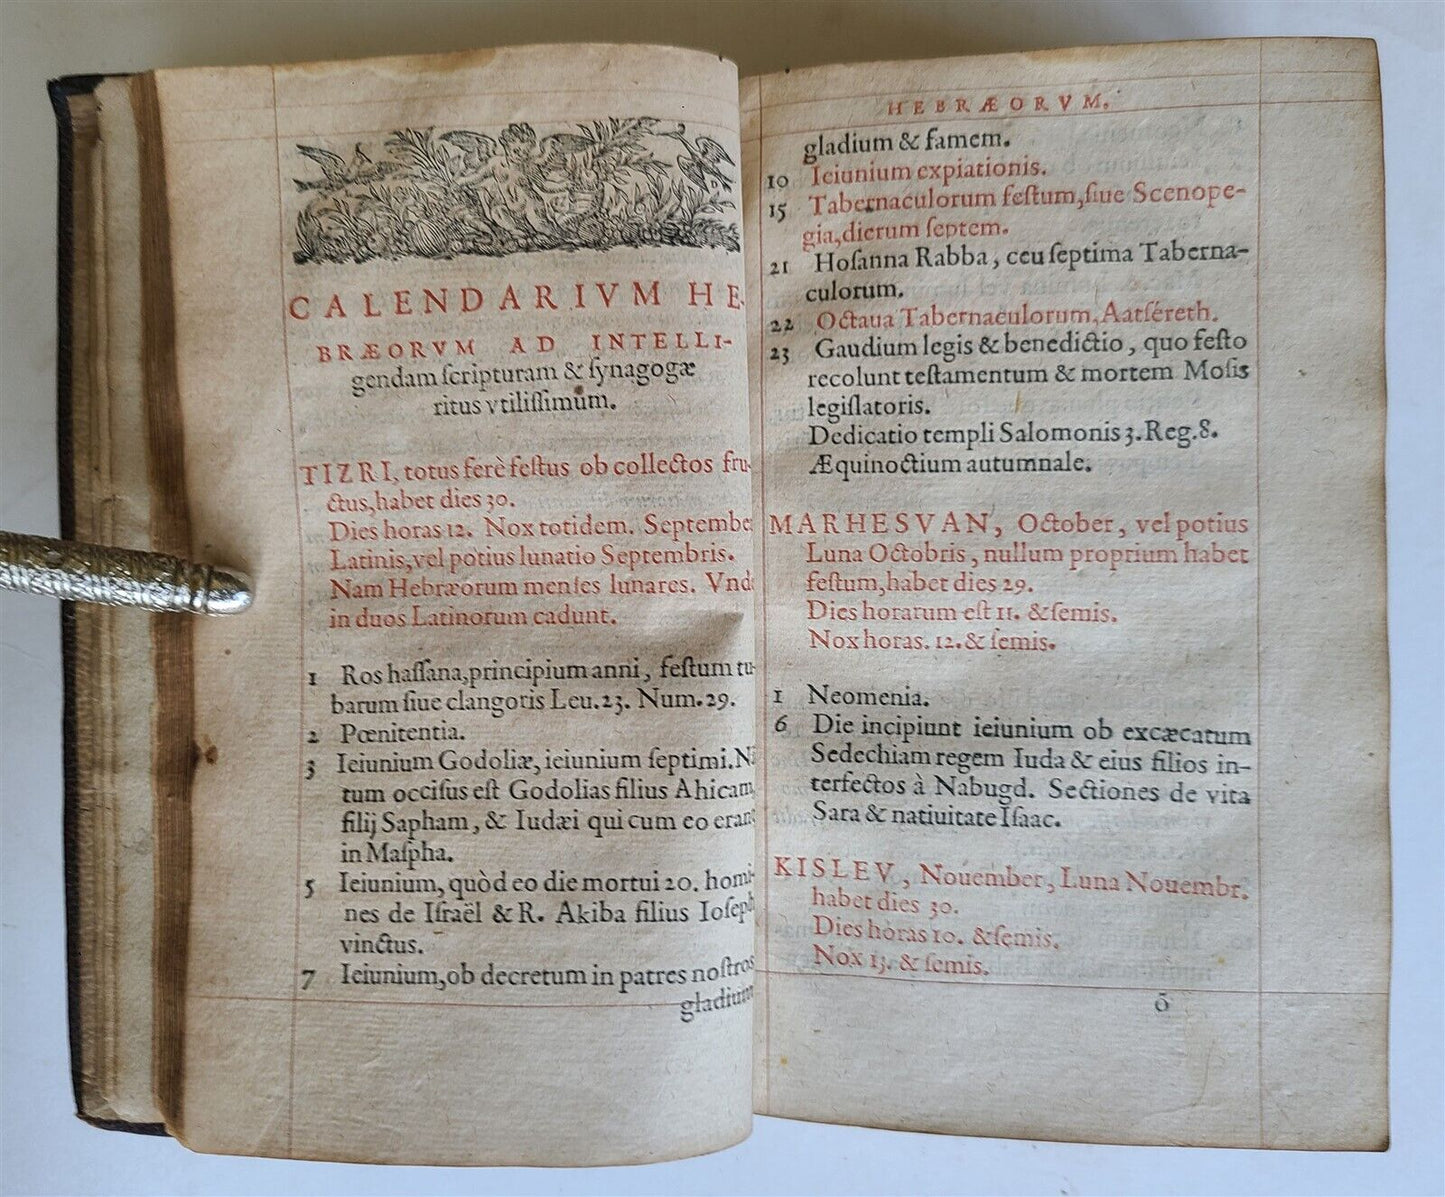 CALENDARIVM HE-
BRÆORVM AD INTELLI-
gendam ſcripturam & ſynagogæ
ritus vtiliſſimum.
TIZRI, totus ferè feſtus ob collectos fru-
ctus, habet dies 30.
Dies horas 12. Nox totidem. September
Latinis, vel potius lunatio Septembris.
Nam Hebræorum menſes lunares. Vnde
in duos Latinorum cadunt.
1 Ros haſſana, principium anni, feſtum tu-
barum ſiue clangoris Leu. 23. Num. 29.
2 Pœnitentia.
3 Ieiunium Godoliæ, ieiunium ſeptimi.
tum occiſus eſt Godolias filius Ahicam,
filij Sapham, & Iudæi qui cum eo erant
in Maſpha.
5 Ieiunium, quòd eo die mortui 20. homi-
nes de Iſraël & R. Akiba filius Ioſeph
vinctus.
7 Ieiunium, ob decretum in patres noſtros
gladium
HEBRÆORVM.
gladium & famem.
10 Ieiunium expiationis.
15 Tabernaculorum feſtum, ſiue Scenope-
gia, dierum ſeptem.
21 Hoſanna Rabba, ceu ſeptima Taberna-
culorum.
22 Octaua Tabernaculorum, Aatſéreth.
23 Gaudium legis & benedictio, quo feſto
recolunt teſtamentum & mortem Moſis
legiſlatoris.
Dedicatio templi Salomonis 3. Reg. 8.
Æquinoctium autumnale.
MARHESVAN, October, vel potius
Luna Octobris, nullum proprium habet
feſtum, habet dies 29.
Dies horarum eſt 11. & ſemis.
Nox horas. 12. & ſemis.
1 Neomenia.
6 Die incipiunt ieiunium ob excæcatum
Sedechiam regem Iuda & eius filios in-
terfectos à Nabugd. Sectiones de vita
Sara & natiuitate Iſaac.
KISLEV, Nouember, Luna Nouembr.
habet dies 30.
Dies horas 10. & ſemis.
Nox 13. & ſemis.
õ